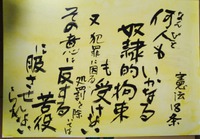 憲法18条
なんぴと
何人も
いかなる
奴隷的拘束
も受けない
又犯罪に因る
処罰の場合を除いては
その意に反する
苦役
に服させ
られない